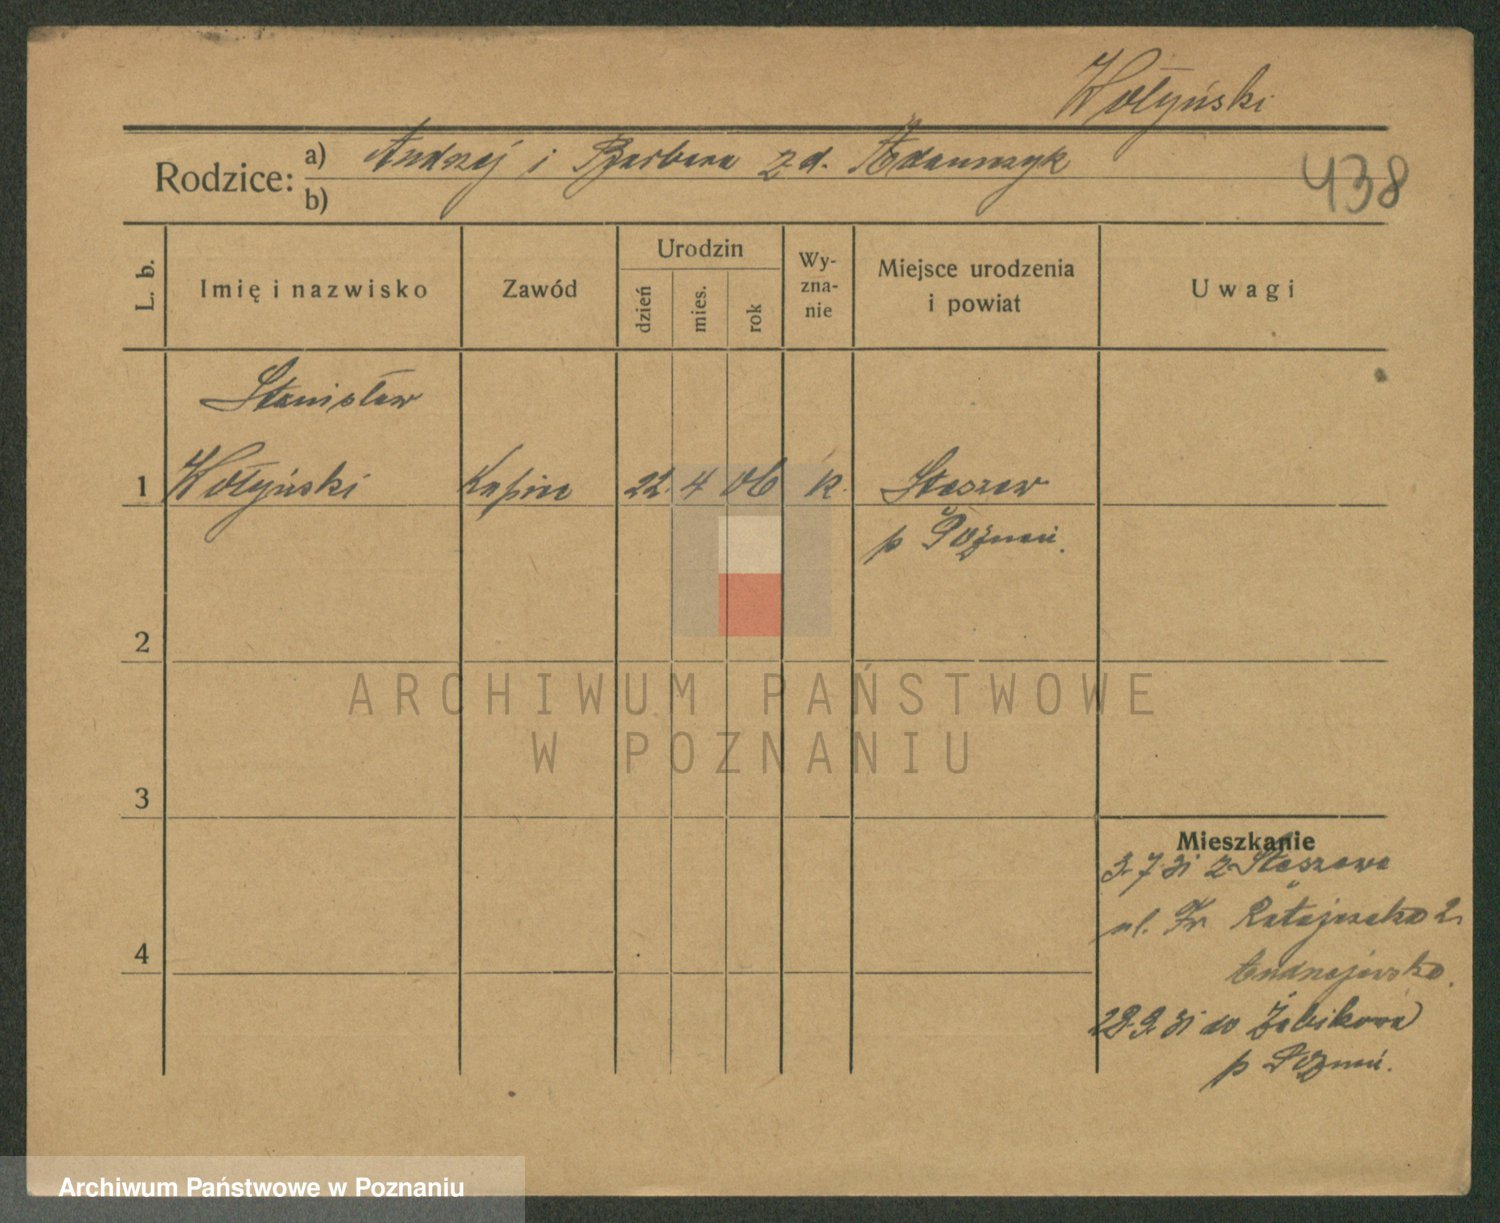 Wołyński
Rodzice: a) Andrzej i Barbara z d. Adamczyk
b)
438
L. b.
Imię i nazwisko
Zawód
Urodzin
dzień
mies.
rok
Wy-
zna-
nie
Miejsce urodzenia
i powiat
Uwagi
Stanisław
1 Wołyński 22. 4 06 k. Staszew
p Poznań.
2
ARCHIWUM PAŃSTWOWE
W POZNANIU
3
Mieszkanie
3.7.31 z Staszewa
ul. Fr Ratajczaka 2
4
28.9.31 do Żabikowa
p Poznań.
Archiwum Państwowe w Poznaniu